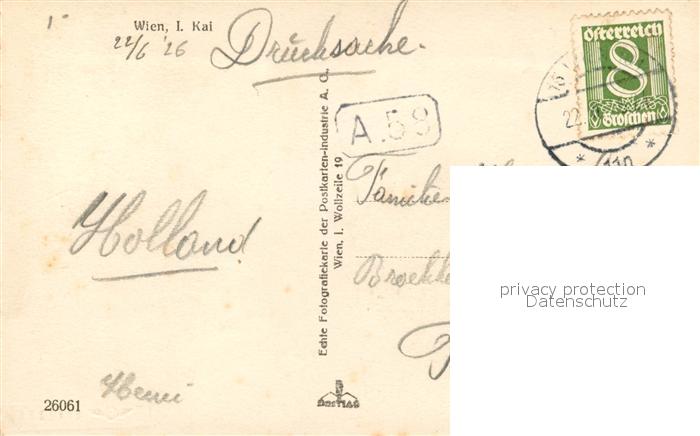 Wien, I. Kai
22/6 '26
Drucksache.
Österreich
8
Groschen
22.
* 110 *
A.58
Echte Fotografiekarte der Postkarten-Industrie A. G.
Wien, I. Wollzeile 19
Familie
Holland
privacy protection
Datenschutz
Henri
26061